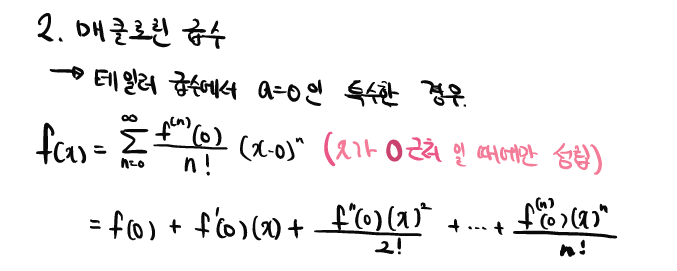 2. 매클로린 급수
→ 테일러 급수에서 a=0인 특수한 경우.
f(x) = ∑_{n=0}^{∞} f^{(n)}(0)/n! (x-0)^n (x가 0근처 일 때에만 성립)
= f(0) + f'(0)(x) + f''(0)(x)^2/2! + ... + f^{(n)}(0)(x)^n/n!